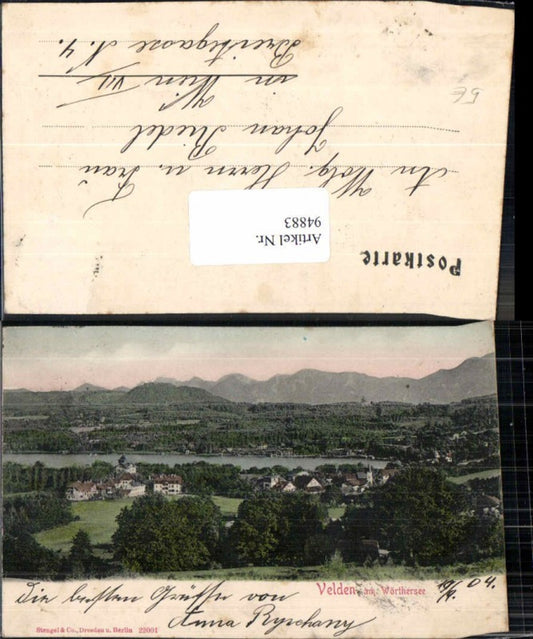 Postkarte
Artikel Nr.
94883
An Wolg. Herrn u. Frau
Johan Riedel
in Wien VII
Breitegasse N. 4.
5€
Velden am Wörthersee
Die besten Grüße von
Anna
Stengel & Co., Dresden u. Berlin 22001